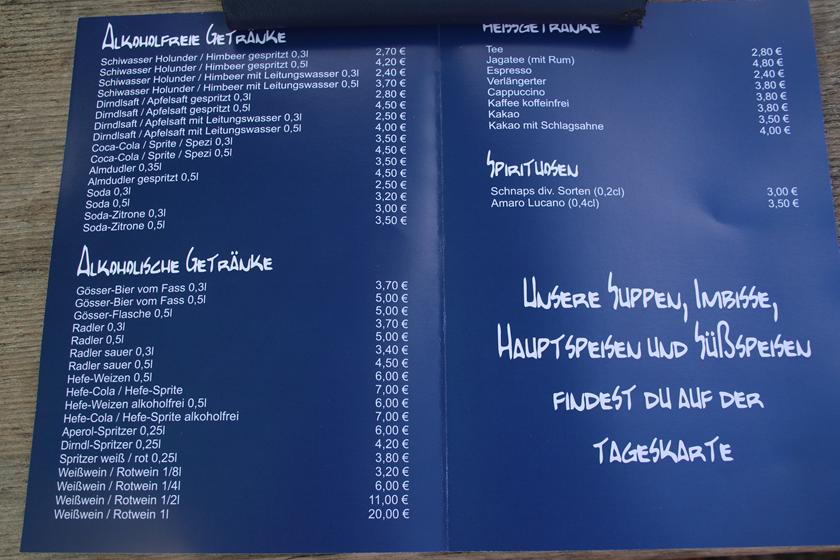 ALKOHOLFREIE GETRÄNKE
Schiwasser Holunder / Himbeer gespritzt 0,3l 2,70 €
Schiwasser Holunder / Himbeer gespritzt 0,5l 4,20 €
Schiwasser Holunder / Himbeer mit Leitungswasser 0,3l 2,40 €
Schiwasser Holunder / Himbeer mit Leitungswasser 0,5l 3,70 €
Dirndlsaft / Apfelsaft gespritzt 0,3l 2,80 €
Dirndlsaft / Apfelsaft gespritzt 0,5l 4,50 €
Dirndlsaft / Apfelsaft mit Leitungswasser 0,3l 2,50 €
Dirndlsaft / Apfelsaft mit Leitungswasser 0,5l 4,00 €
Coca-Cola / Sprite / Spezi 0,3l 3,50 €
Coca-Cola / Sprite / Spezi 0,5l 4,50 €
Almdudler 0,35l 3,50 €
Almdudler gespritzt 0,5l 4,50 €
Soda 0,3l 2,50 €
Soda 0,5l 3,20 €
Soda-Zitrone 0,3l 3,00 €
Soda-Zitrone 0,5l 3,50 €
ALKOHOLISCHE GETRÄNKE
Gösser-Bier vom Fass 0,3l 3,70 €
Gösser-Bier vom Fass 0,5l 5,00 €
Gösser-Flasche 0,5l 5,00 €
Radler 0,3l 3,70 €
Radler 0,5l 5,00 €
Radler sauer 0,3l 3,40 €
Radler sauer 0,5l 4,50 €
Hefe-Weizen 0,5l 6,00 €
Hefe-Cola / Hefe-Sprite 7,00 €
Hefe-Weizen alkoholfrei 0,5l 6,00 €
Hefe-Cola / Hefe-Sprite alkoholfrei 7,00 €
Aperol-Spritzer 0,25l 6,00 €
Dirndl-Spritzer 0,25l 4,20 €
Spritzer weiß / rot 0,25l 3,80 €
Weißwein / Rotwein 1/8l 3,20 €
Weißwein / Rotwein 1/4l 6,00 €
Weißwein / Rotwein 1/2l 11,00 €
Weißwein / Rotwein 1l 20,00 €
HEISSGETRÄNKE
Tee 2,80 €
Jagatee (mit Rum) 4,80 €
Espresso 2,40 €
Verlängerter 3,80 €
Cappuccino 3,80 €
Kaffee koffeinfrei 3,80 €
Kakao 3,50 €
Kakao mit Schlagsahne 4,00 €
SPIRITUOSEN
Schnaps div. Sorten (0,2cl) 3,00 €
Amaro Lucano (0,4cl) 3,50 €
UNSERE SUPPEN, IMBISSE,
HAUPTSPEISEN UND SÜßSPEISEN
FINDEST DU AUF DER
TAGESKARTE